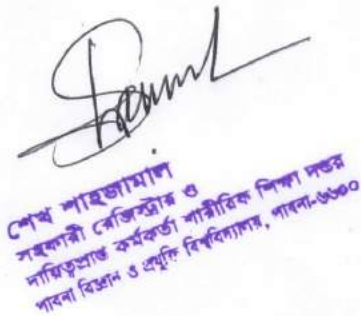 শেখ শাহজামাল
সহকারী রেজিস্ট্রার ও
দায়িত্বপ্রাপ্ত কর্মকর্তা শারীরিক শিক্ষা দপ্তর
পাবনা বিজ্ঞান ও প্রযুক্তি বিশ্ববিদ্যালয়, পাবনা-৬৬০০